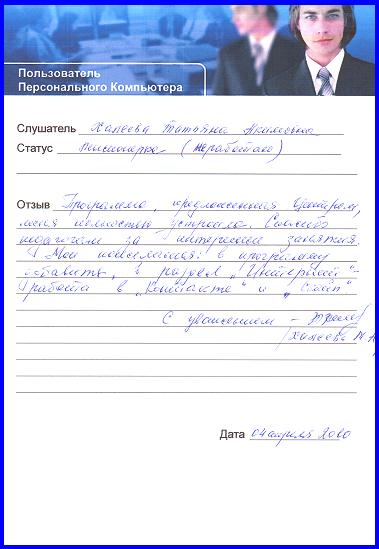 Пользователь
Персонального Компьютера
Слушатель Халеева Татьяна
Статус Пенсионерка (неработаю)
Отзыв Программа, предложенная Центром,
меня полностью устроила. Спасибо
педагогам за интересные занятия.
Мои пожелания: в программу
добавить, в раздел „Интернет" -
работа в „Контакте" и „Скайп"
С уважением -
/Халеева
Дата 04 апреля 2010